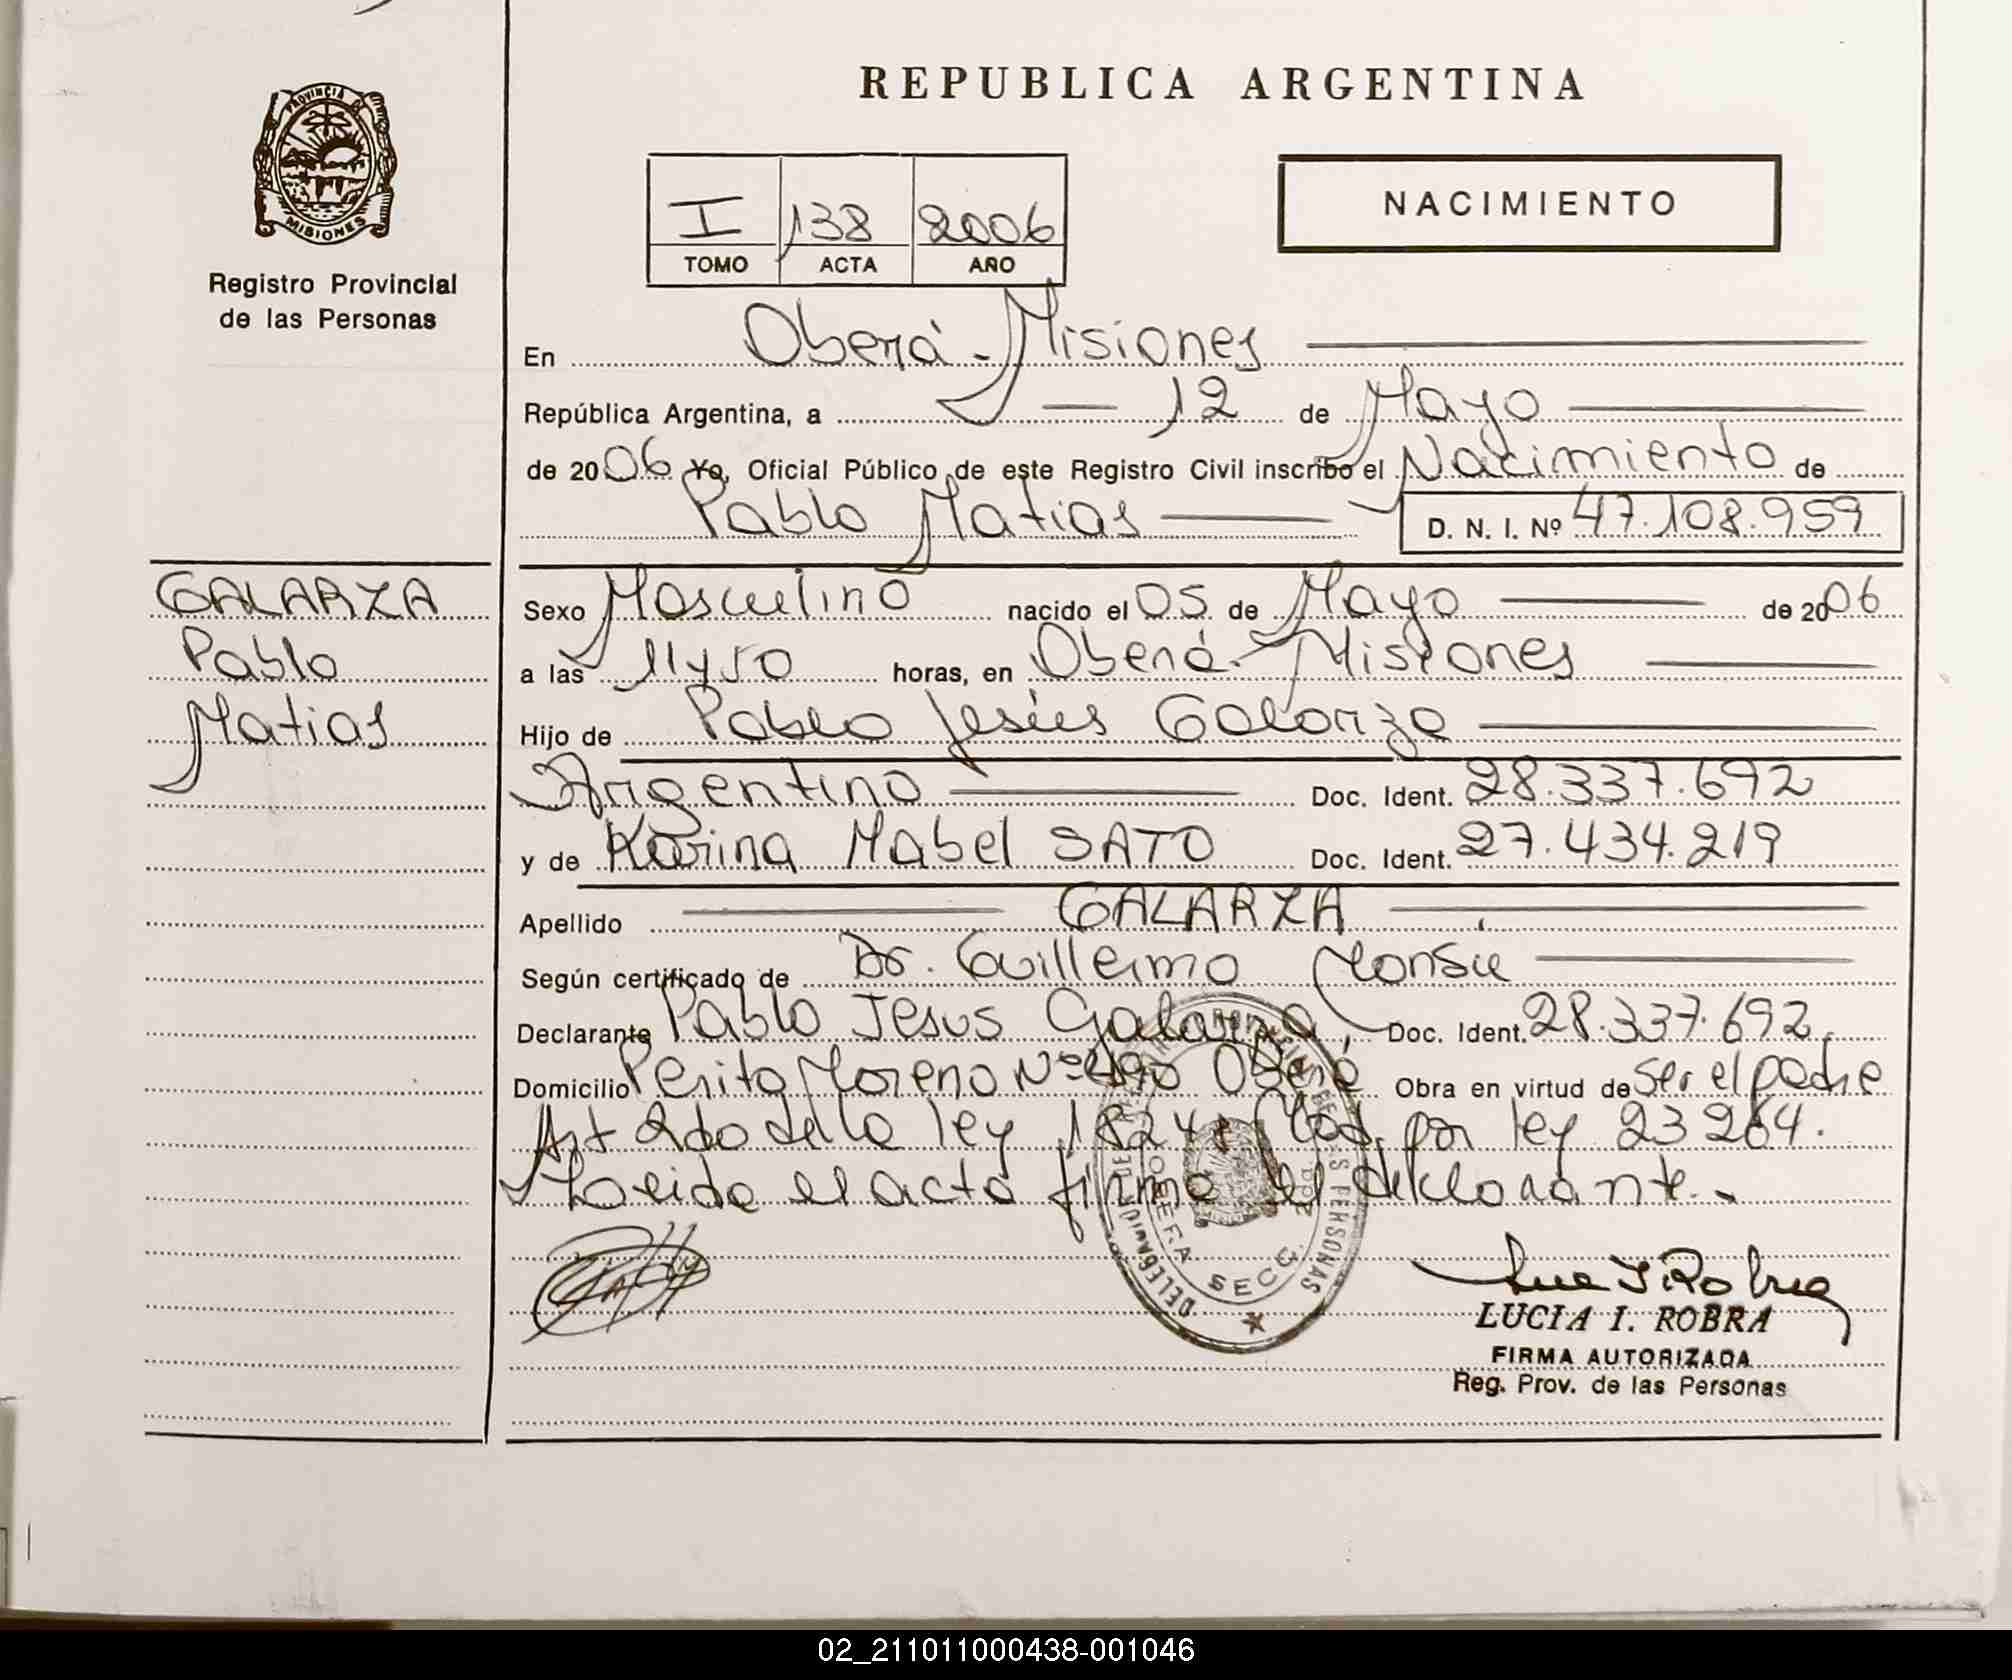 REPUBLICA ARGENTINA
PROVINCIA DE
MISIONES
Registro Provincial
de las Personas
I 138 2006
TOMO ACTA AÑO
NACIMIENTO
En Oberá - Misiones
República Argentina, a 12 de Mayo
de 2006 Yo, Oficial Público de este Registro Civil inscribo el Nacimiento de
Pablo Matias D. N. I. Nº 47.108.959
GALARZA
Pablo
Matias
Sexo Masculino nacido el 05 de Mayo de 2006
a las 11y50 horas, en Oberá - Misiones
Hijo de Pablo Jesús Galarza
Argentino Doc. Ident. 28.337.692
y de Karina Mabel SATO Doc. Ident. 27.434.219
Apellido GALARZA
Según certificado de Dr. Guillermo
Declarante Pablo Jesus Galarza, Doc. Ident. 28.337.692
Domicilio Perito Moreno Nº 490 Oberá Obra en virtud de ser el padre
Art 2do de la ley 18248 Mod. por ley 23264.
Leido el acto firma el declarante.
DELEGACION DE PERSONAS
SECC.
LUCIA I. ROBRA
FIRMA AUTORIZADA
Reg. Prov. de las Personas
02_211011000438-001046